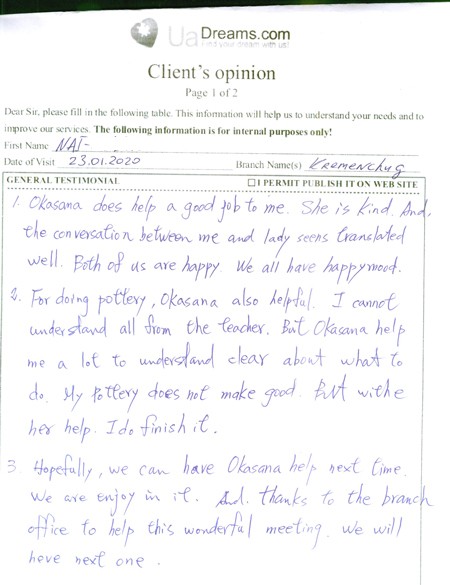 UaDreams.com
Find your dream with us!
Client's opinion
Page 1 of 2
Dear Sir, please fill in the following table. This information will help us to understand your needs and to
improve our services. The following information is for internal purposes only!
First Name NAI-
Date of Visit 23.01.2020 Branch Name(s) Kremenchug
GENERAL TESTIMONIAL ☐ I PERMIT PUBLISH IT ON WEB SITE
1. Okasana does help a good job to me. She is kind. And,
the conversation between me and lady seens translated
well. Both of us are happy. We all have happy mood.
2. For doing pottery, Okasana also helpful. I cannot
understand all from the teacher. But Okasana help
me a lot to understand clear about what to
do. My Pottery does not make good. But withe
her help. I do finish it.
3. Hopefully, we can have Okasana help next time.
We are enjoy in it. And. thanks to the branch
office to help this wonderful meeting. We will
have next one.